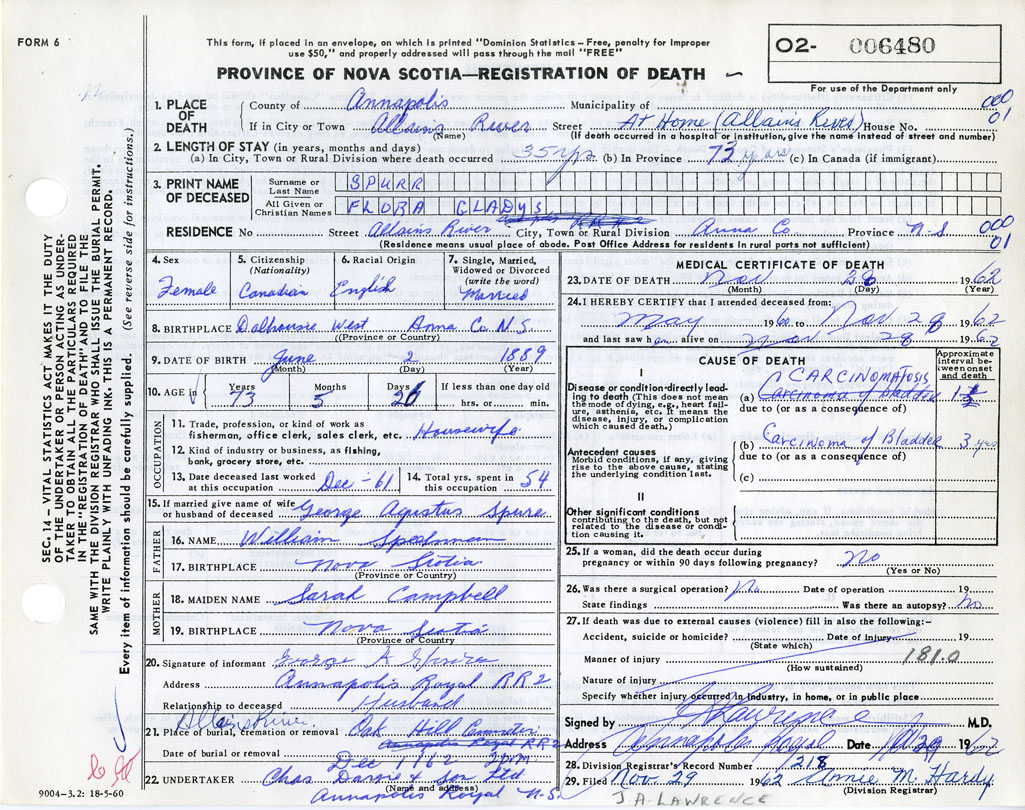 FORM 6
This form, if placed in an envelope, on which is printed "Dominion Statistics – Free, penalty for improper
use $50," and properly addressed will pass through the mail "FREE"
O2- 006480
PROVINCE OF NOVA SCOTIA—REGISTRATION OF DEATH
For use of the Department only
1. PLACE OF DEATH County of Annapolis Municipality of 000
If in City or Town Allains River Street At Home (Allains River) House No. 01
(Name) (If death occurred in a hospital or institution, give the name instead of street and number)
2. LENGTH OF STAY (in years, months and days)
(a) In City, Town or Rural Division where death occurred 35 yrs. (b) In Province 73 years (c) In Canada (if immigrant)
3. PRINT NAME OF DECEASED Surname or Last Name SPURR
All Given or Christian Names FLORA GLADYS
RESIDENCE No Street Allains River City, Town or Rural Division Anna Co Province N-S 000 01
(Residence means usual place of abode. Post Office Address for residents in rural parts not sufficient)
4. Sex Female
5. Citizenship (Nationality) Canadian
6. Racial Origin English
7. Single, Married, Widowed or Divorced (write the word) Married
8. BIRTHPLACE Dalhousie West Anna Co N.S.
(Province or Country)
9. DATE OF BIRTH June 2 1889
(Month) (Day) (Year)
10. AGE in Years 73 Months 5 Days 26 If less than one day old
hrs. or min.
OCCUPATION
11. Trade, profession, or kind of work as fisherman, office clerk, sales clerk, etc. Housewife
12. Kind of industry or business, as fishing, bank, grocery store, etc.
13. Date deceased last worked at this occupation Dec-61
14. Total yrs. spent in this occupation 54
15. If married give name of wife or husband of deceased George Agustus Spurr
FATHER
16. NAME William
17. BIRTHPLACE Nova Scotia
(Province or Country)
MOTHER
18. MAIDEN NAME Sarah Campbell
19. BIRTHPLACE Nova Scotia
(Province or Country)
20. Signature of informant George A Spurr
Address Annapolis Royal RR2
Relationship to deceased Husband
Allains River
21. Place of burial, cremation or removal Oak Hill
Annapolis Royal RR2
Date of burial or removal Dec 1 1962 2 pm
22. UNDERTAKER Chas Dargie & Son Ltd
(Name and address)
Annapolis Royal N.S.
9004–3.2: 18-5-60
MEDICAL CERTIFICATE OF DEATH
23. DATE OF DEATH Nov 28 1962
(Month) (Day) (Year)
24. I HEREBY CERTIFY that I attended deceased from:
May 1960 to Nov 28 1962
and last saw her alive on Nov 28 1962
CAUSE OF DEATH
Approximate interval between onset and death
I
Disease or condition directly leading to death (This does not mean the mode of dying, e.g., heart failure, asthenia, etc. It means the disease, injury, or complication which caused death.)
CARCINOMATOSIS
(a) Carcinoma of bladder
due to (or as a consequence of)
Antecedent causes
Morbid conditions, if any, giving rise to the above cause, stating the underlying condition last.
(b) Carcinoma of Bladder 3 yrs
due to (or as a consequence of)
(c)
II
Other significant conditions contributing to the death, but not related to the disease or condition causing it.
25. If a woman, did the death occur during pregnancy or within 90 days following pregnancy? No
(Yes or No)
26. Was there a surgical operation? No Date of operation 19
State findings Was there an autopsy? No
27. If death was due to external causes (violence) fill in also the following:–
Accident, suicide or homicide? Date of injury 19
(State which)
Manner of injury 181.0
(How sustained)
Nature of injury
Specify whether injury occurred in industry, in home, or in public place
Signed by Lawrence M.D.
Address Annapolis Royal Date N 29 1962
28. Division Registrar's Record Number 1218
29. Filed Nov. 29 1962 Annie M. Hardy
(Division Registrar)
J.A. LAWRENCE
SEC. 14 – VITAL STATISTICS ACT MAKES IT THE DUTY
OF THE UNDERTAKER OR PERSON ACTING AS UNDER-
TAKER TO OBTAIN ALL THE PARTICULARS REQUIRED
IN THE "REGISTRATION OF DEATH" AND TO FILE THE
SAME WITH THE DIVISION REGISTRAR WHO SHALL ISSUE THE BURIAL PERMIT.
WRITE PLAINLY WITH UNFADING INK. THIS IS A PERMANENT RECORD.
Every item of information should be carefully supplied. (See reverse side for instructions.)